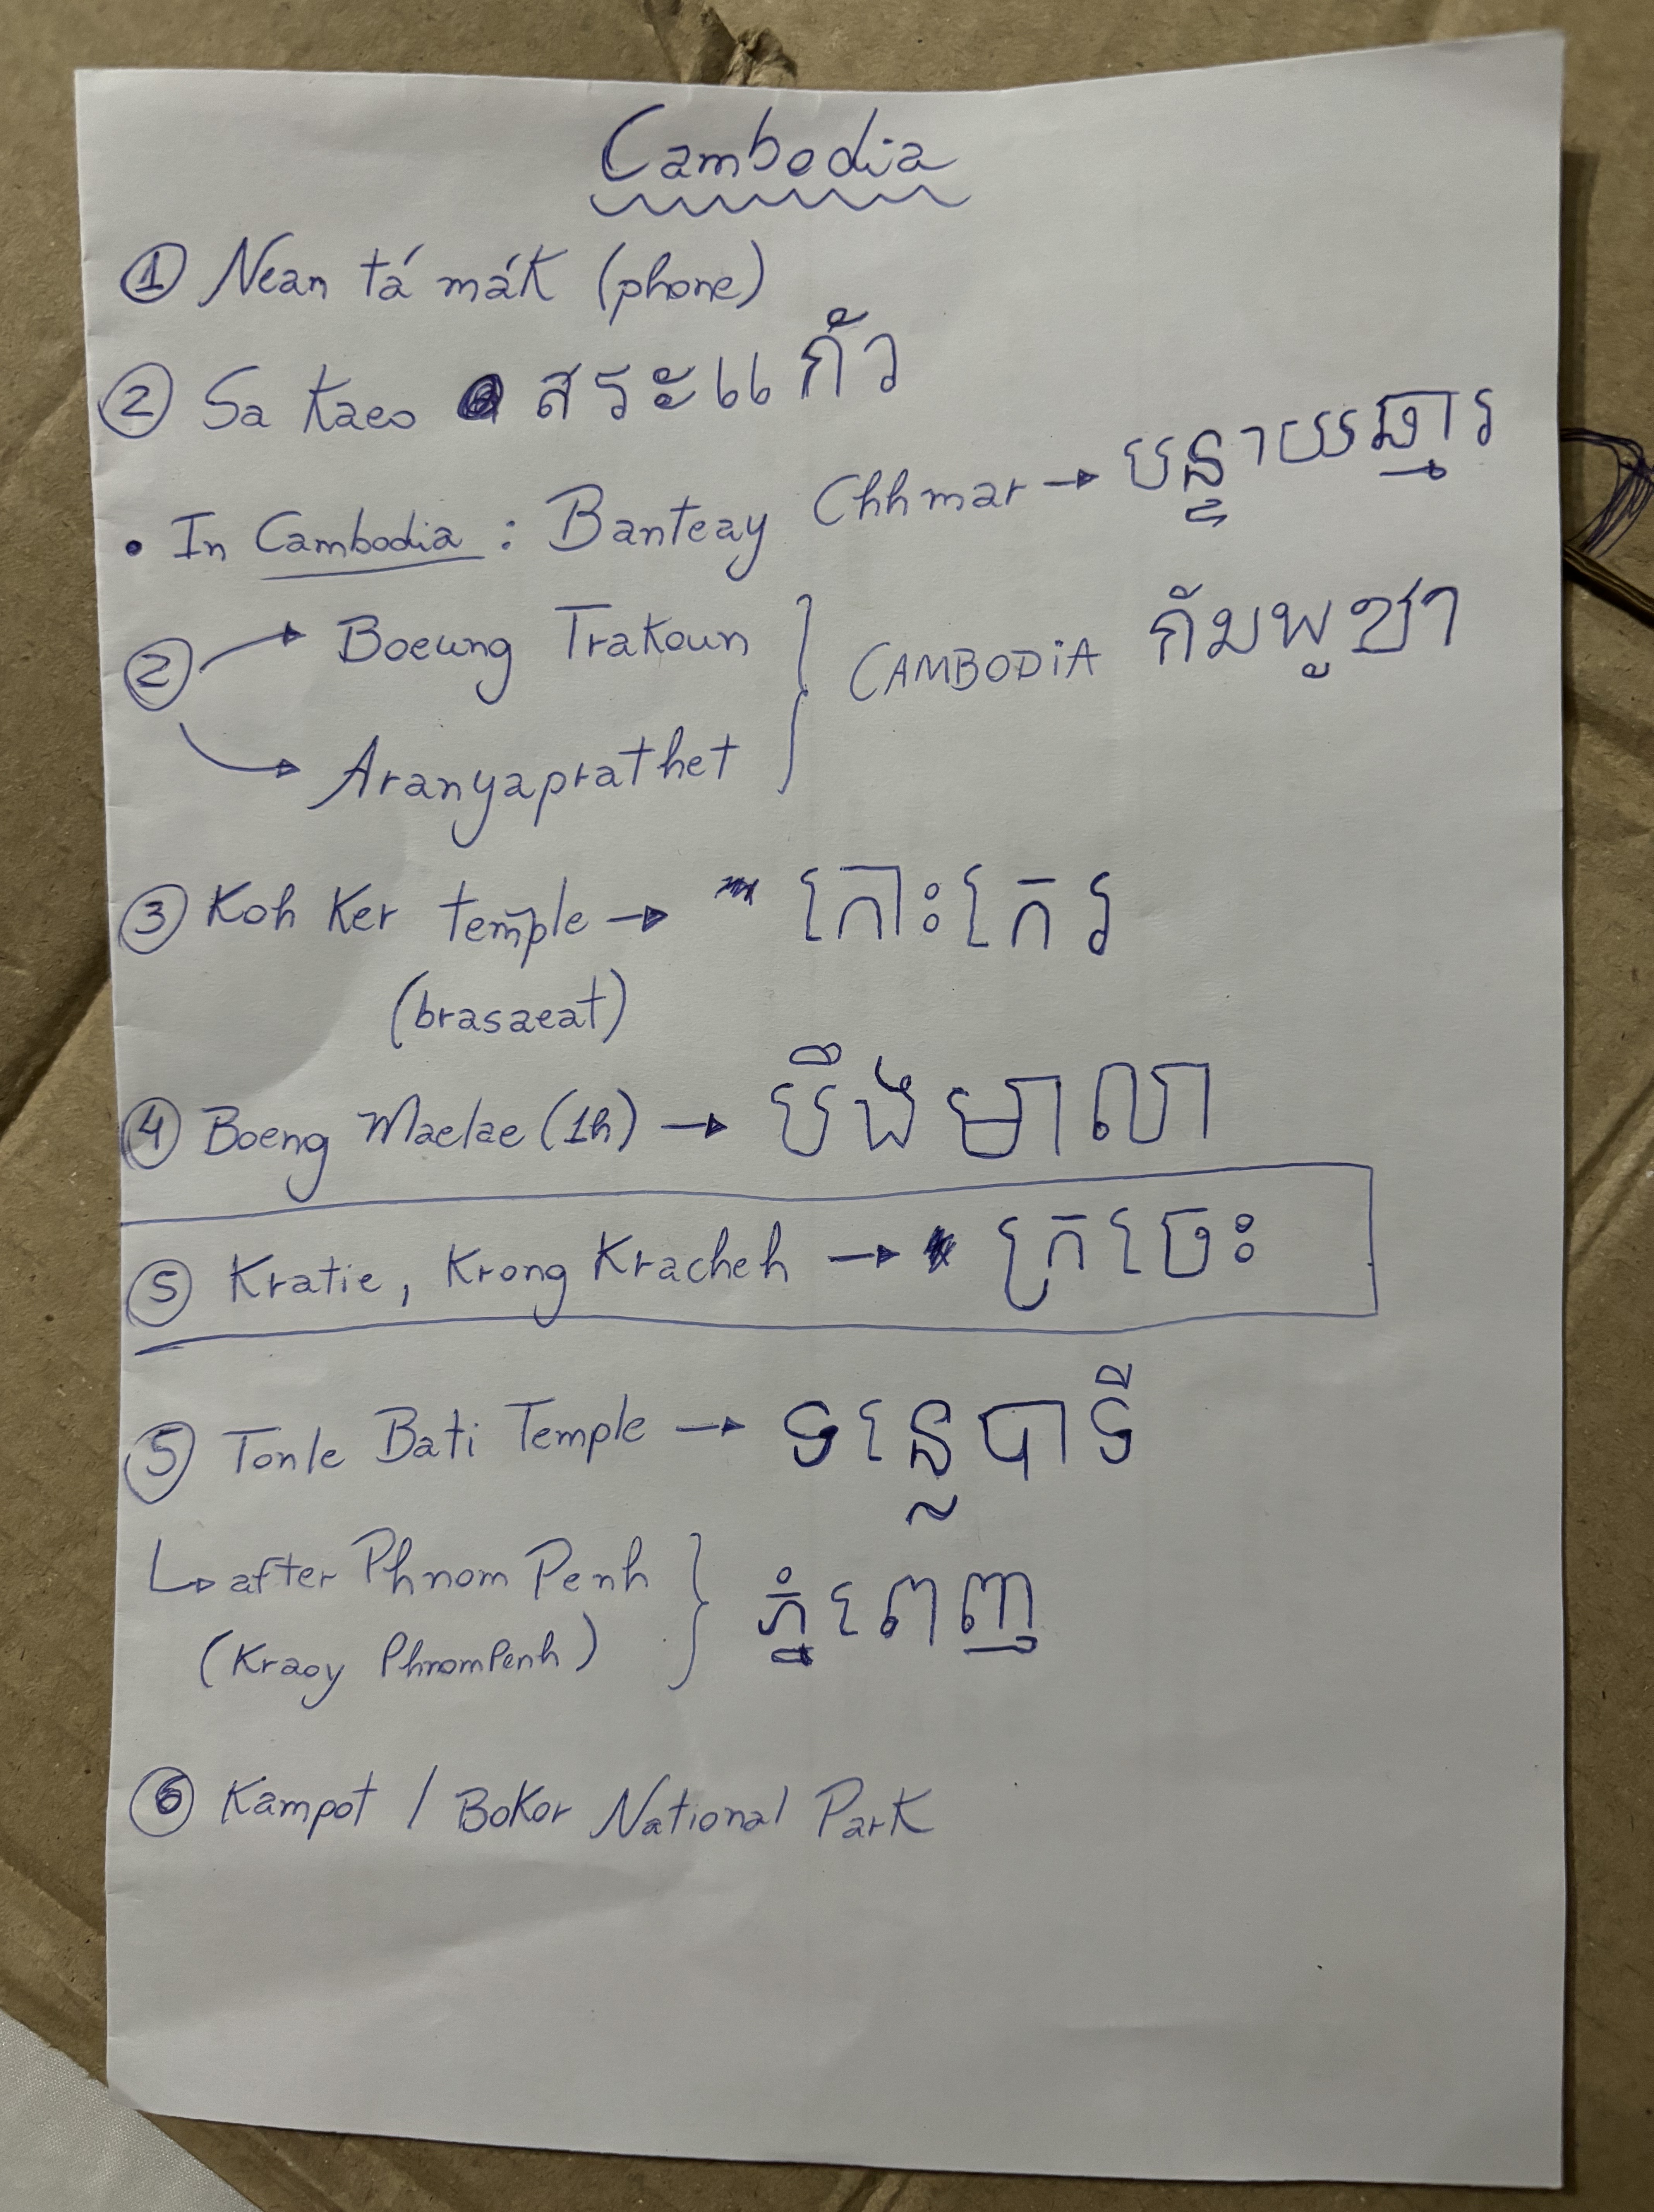 Cambodia
① Nean tá mák (phone)
② Sa Kaeo สระแก้ว
• In Cambodia : Banteay Chhmar → បន្ទាយឆ្មារ
② → Boeung Trakoun
→ Aranyaprathet } CAMBODIA กัมพูชา
③ Koh Ker temple → កោះកេរ
(brasaeat)
④ Boeng Maelae (1h) → បឹងមាលា
⑤ Kratie, Krong Kracheh → ក្រចេះ
⑤ Tonle Bati Temple → ទន្លេបាទី
↳ after Phnom Penh } ភ្នំពេញ
(Kraoy Phnom Penh)
⑥ Kampot / Bokor National Park